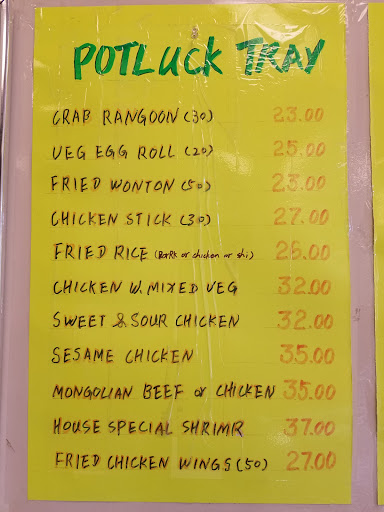 POTLUCK TRAY
CRAB RANGOON (30) 23.00
VEG EGG ROLL (20) 25.00
FRIED WONTON (50) 23.00
CHICKEN STICK (30) 27.00
FRIED RICE (PORK or chicken or shi) 25.00
CHICKEN W. MIXED VEG 32.00
SWEET & SOUR CHICKEN 32.00
SESAME CHICKEN 35.00
MONGOLIAN BEEF or CHICKEN 35.00
HOUSE SPECIAL SHRIMP 37.00
FRIED CHICKEN WINGS (50) 27.00